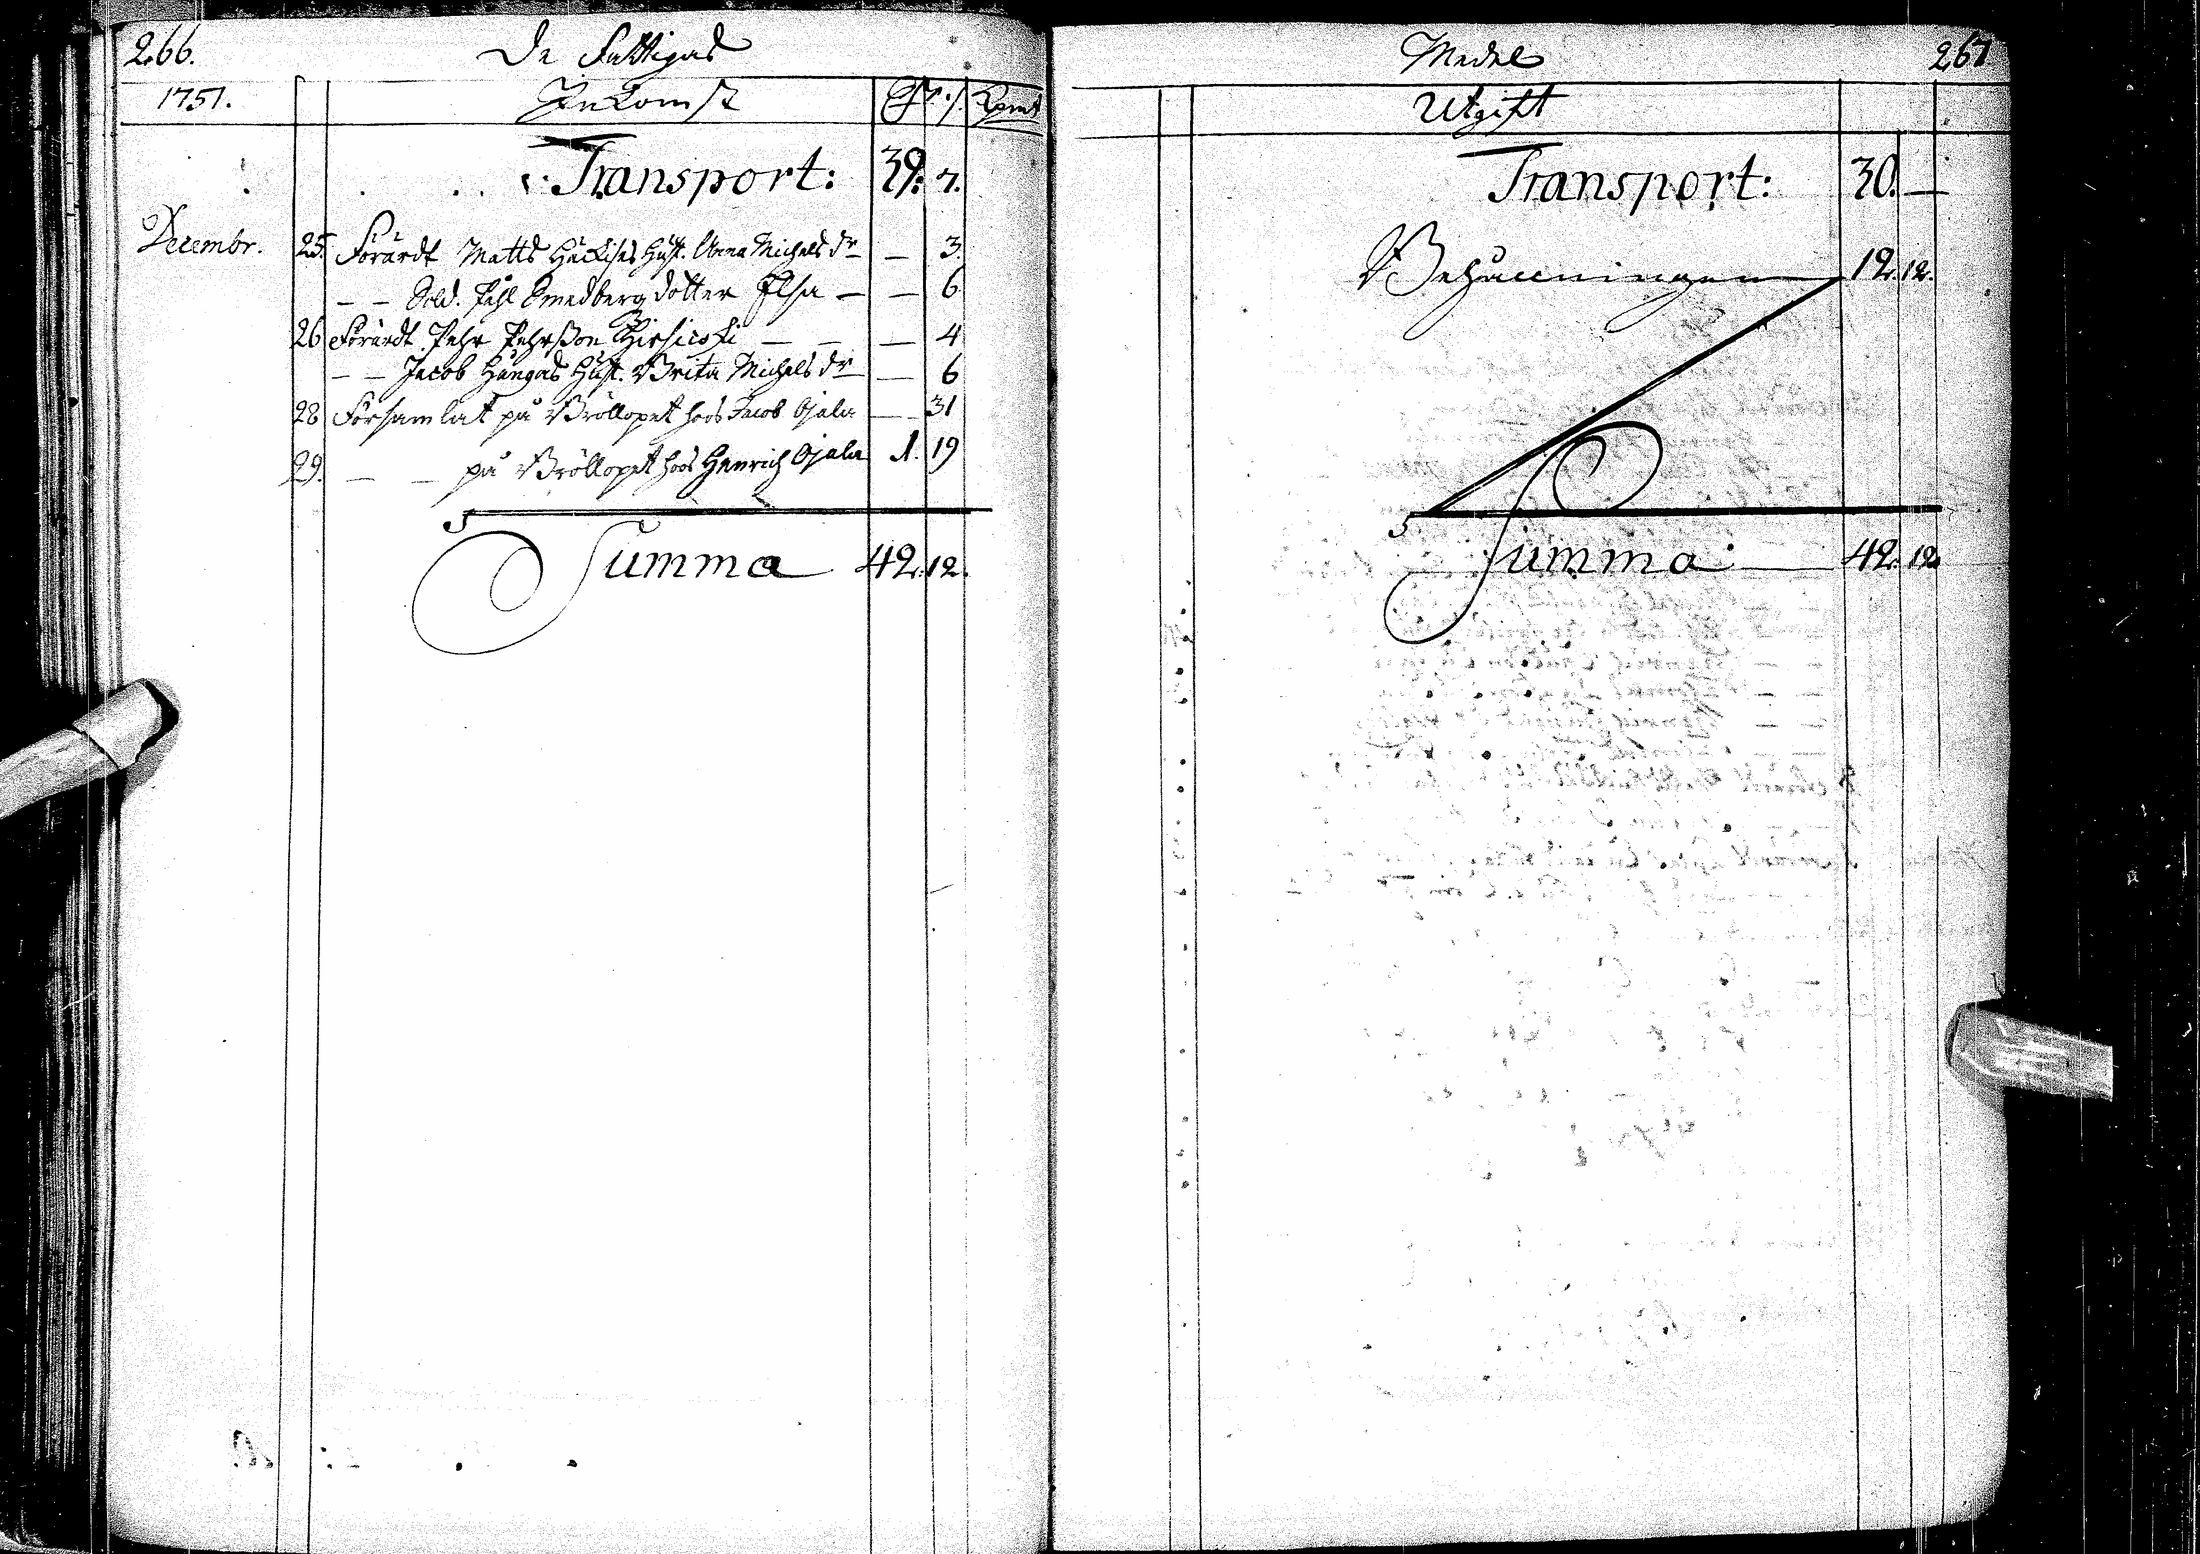 266.
De Fattigas
1751. Inkomst
Transport: 39: 7.
Decembr. 25. Förärdt Matts Häckiläs Hust. Anna Michels dr — 3.
— — Sold. Påhl Smedberg dotter Elsa — — 6
26 Förärdt Pehr Pehrßon — — — 4
— — Jacob Hangas Hust. Brita Michels dr — 6
28 Församlat på Bröllopet hoos Jacob Ojala — 31
29. — — på Bröllopet hoos Henrich Ojala 1. 19
Summa 42. 12.
Medel
267
Utgift
Transport: 30. —
Behållningen 12. 12.
Summa: — 42. 12.